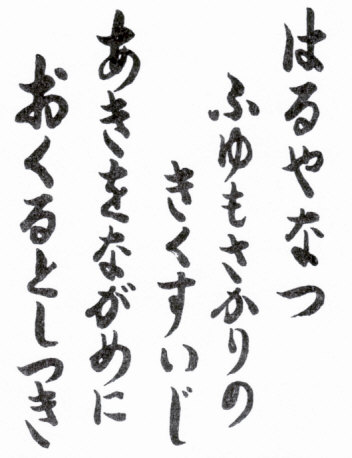 はるやなつ
ふゆもさかりの
きくすいじ
あきをながめに
おくるとしつき